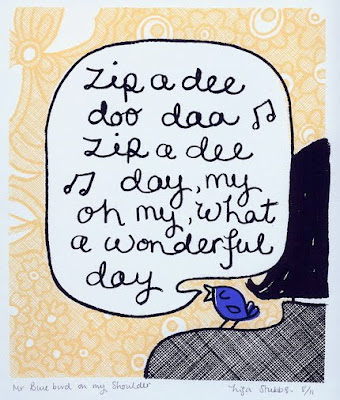 zip a dee
doo daa
zip a dee
day, my
oh my, what
a wonderful
day
Mr Blue bird on my Shoulder
Liza Stubbs. 8/11